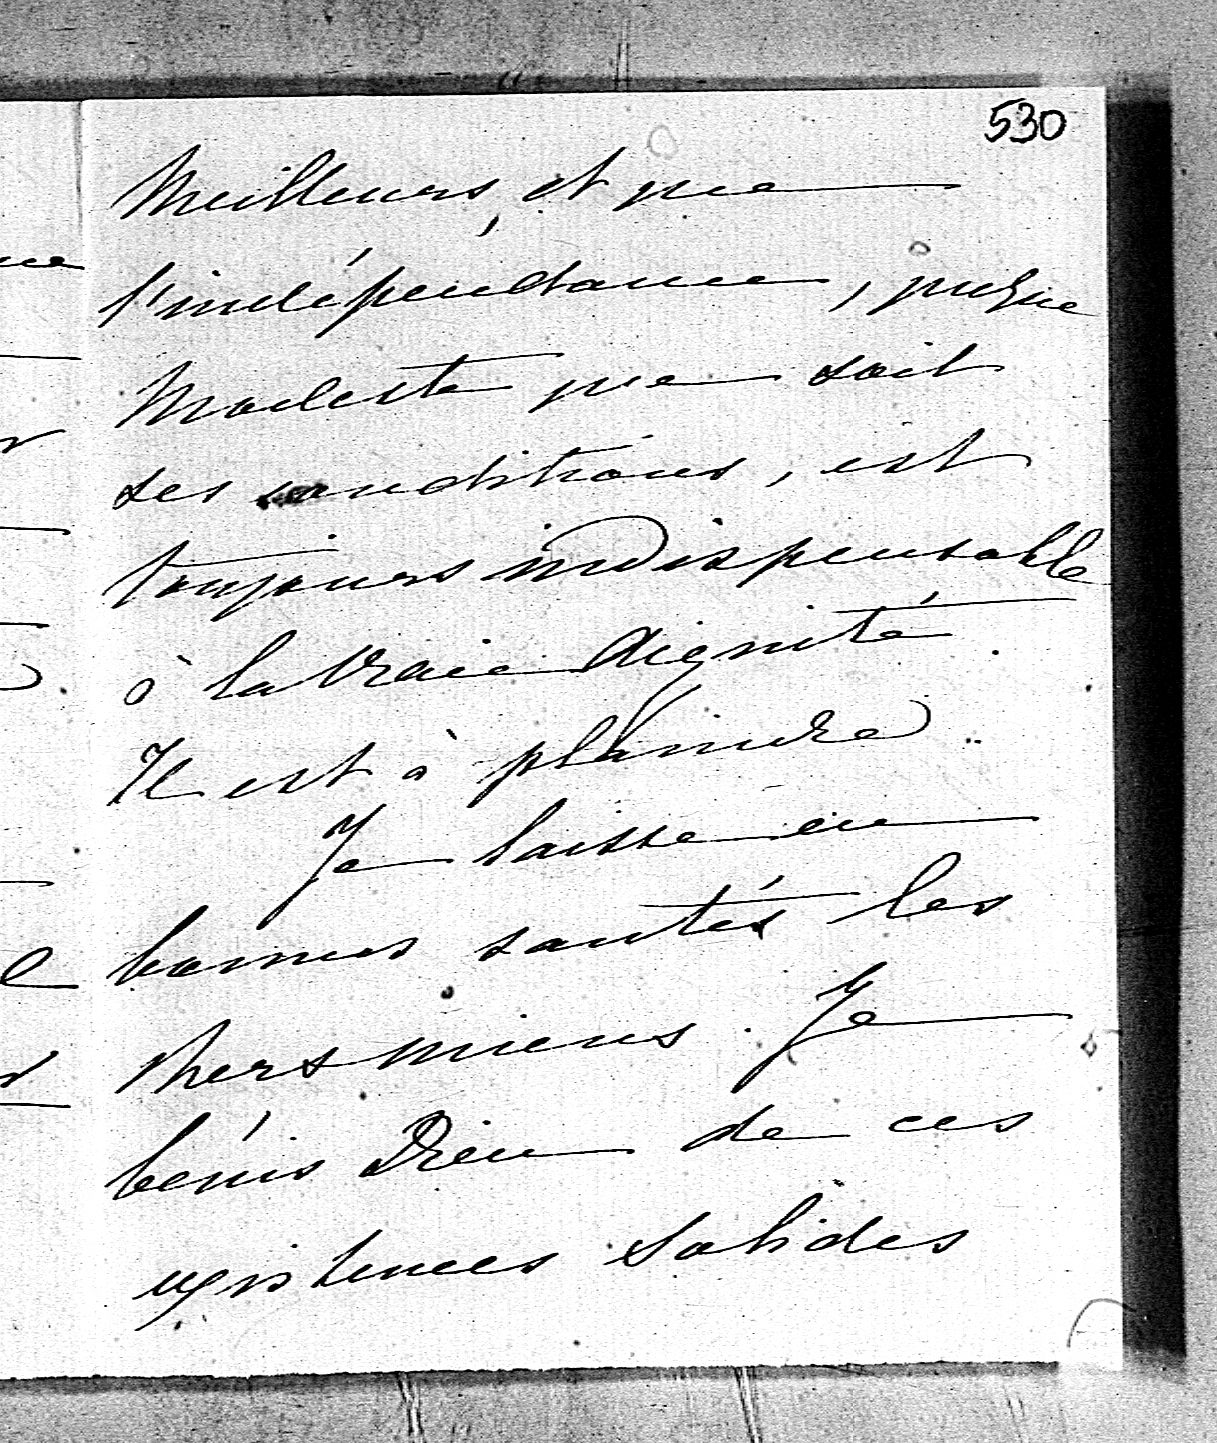 530
Meilleurs, et que
l'indépendance, quelque
Modeste que soit
ses conditions, est
toujours indispensable
à la vraie dignité.
Il est à plaindre.
Je laisse en
bonnes santés les
chers miens. Je
bénis Dieu de ces
existences solides